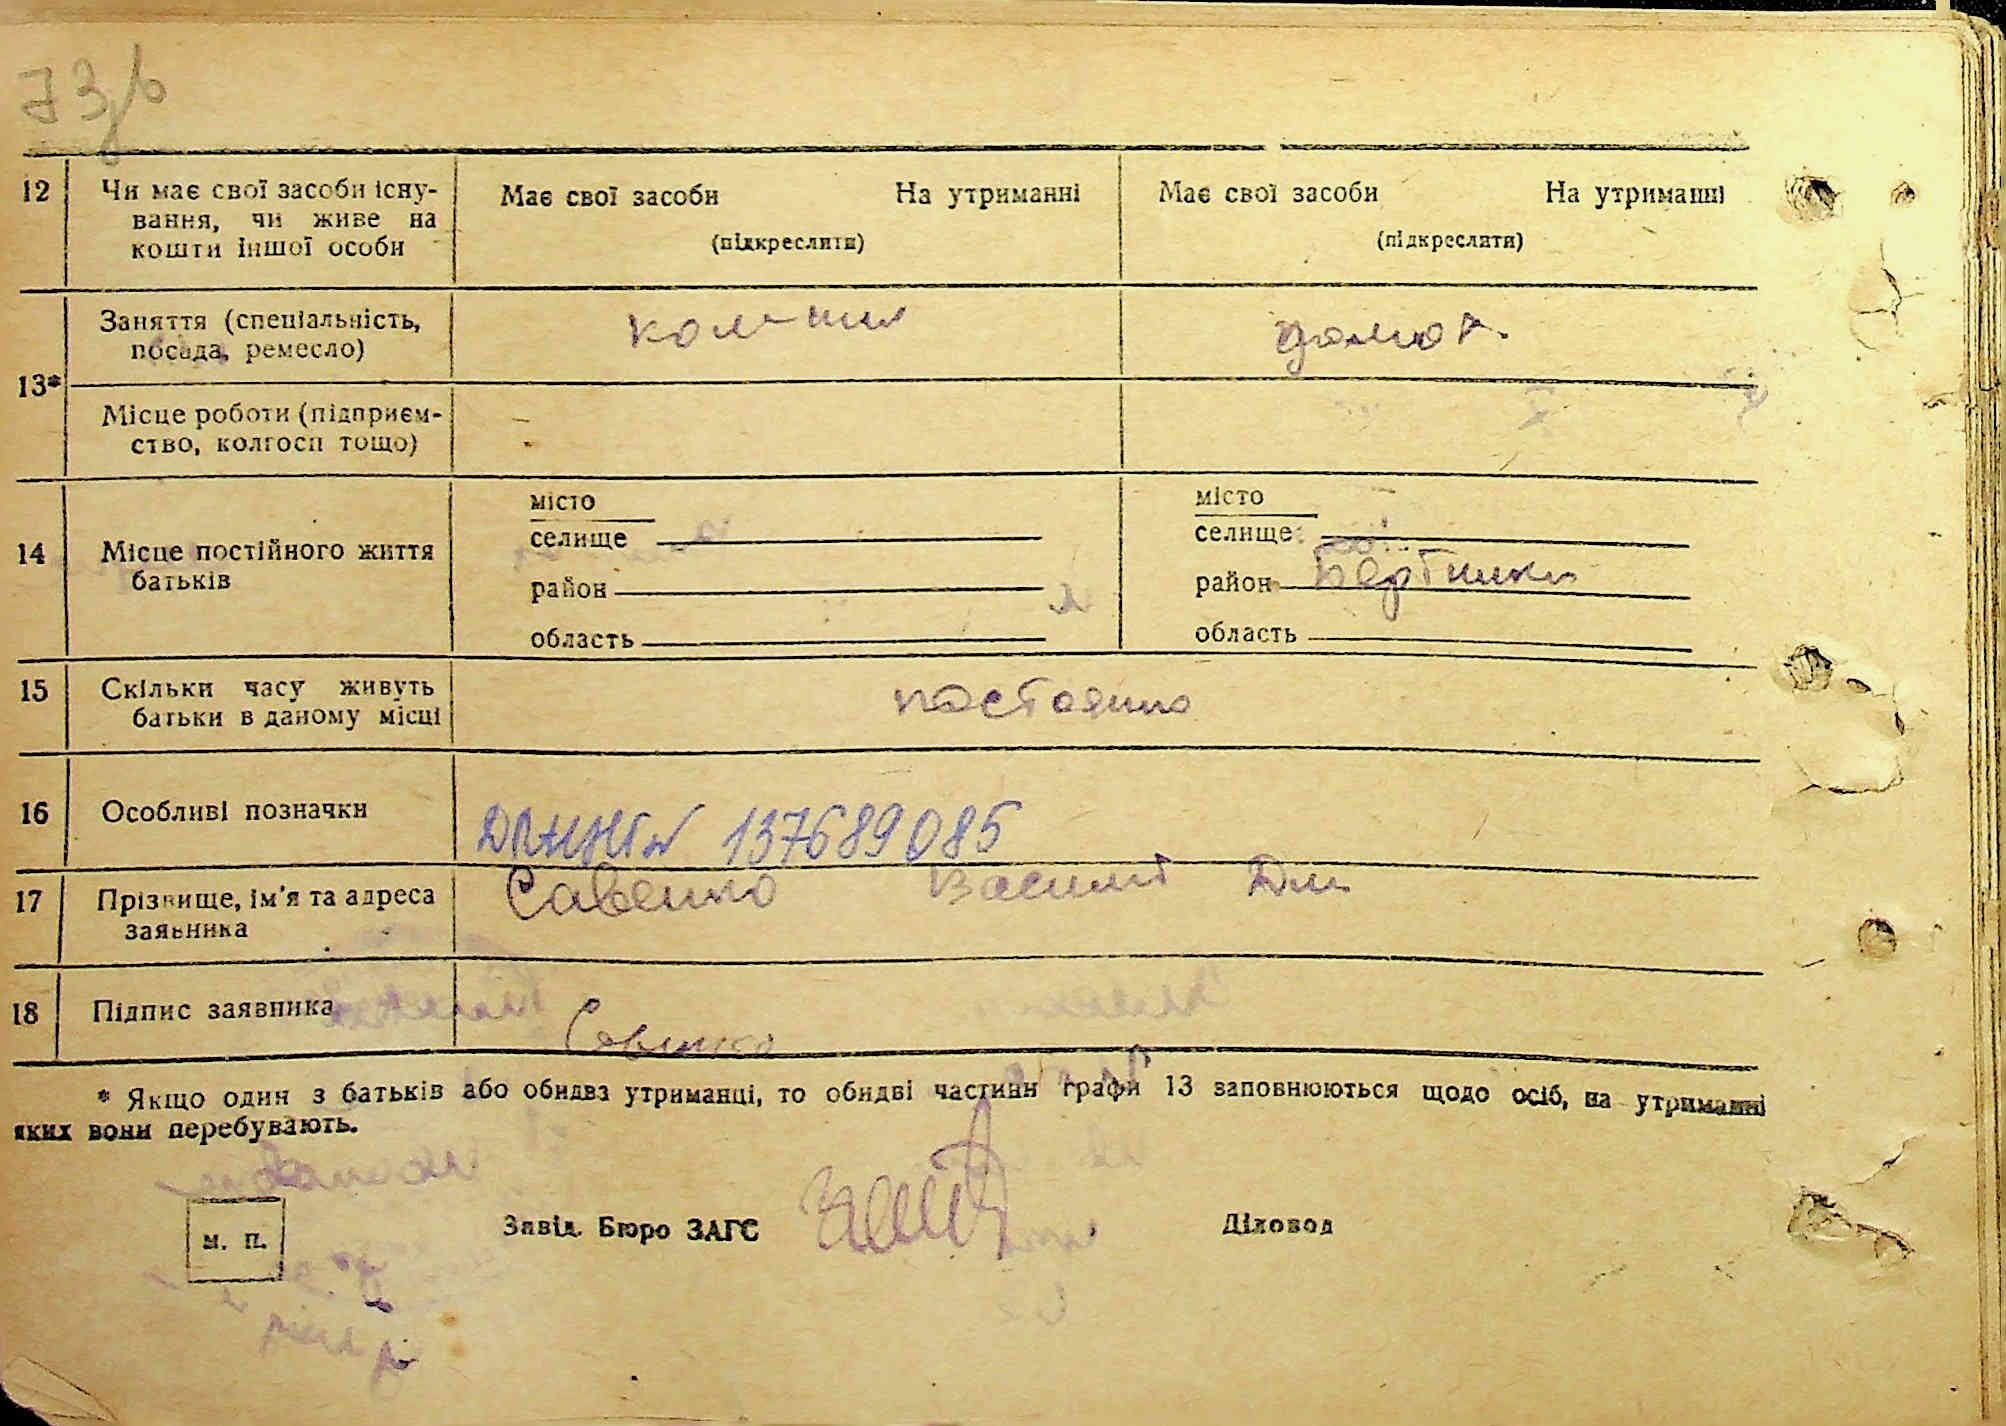 73
12
Чи має свої засоби існу-
вання, чи живе на
кошти іншої особи
Має свої засоби На утриманні
(підкреслити)
Має свої засоби На утриманні
(підкреслити)
13*
Заняття (спеціальність,
посада, ремесло)
Місце роботи (підприєм-
ство, колгосп тощо)
14
Місце постійного життя
батьків
місто
селище
район
область
місто
селище
район
область
15
Скільки часу живуть
батьки в даному місці
постоянно
16
Особливі позначки
137689085
17
Прізвище, ім'я та адреса
заявника
Савенко Василий Дм
18
Підпис заявника
Савенко
* Якщо один з батьків або обидва утриманці, то обидві частини графи 13 заповнюються щодо осіб, на утриманні
яких вони перебувають.
м. п.
Завід. Бюро ЗАГС
Діловод